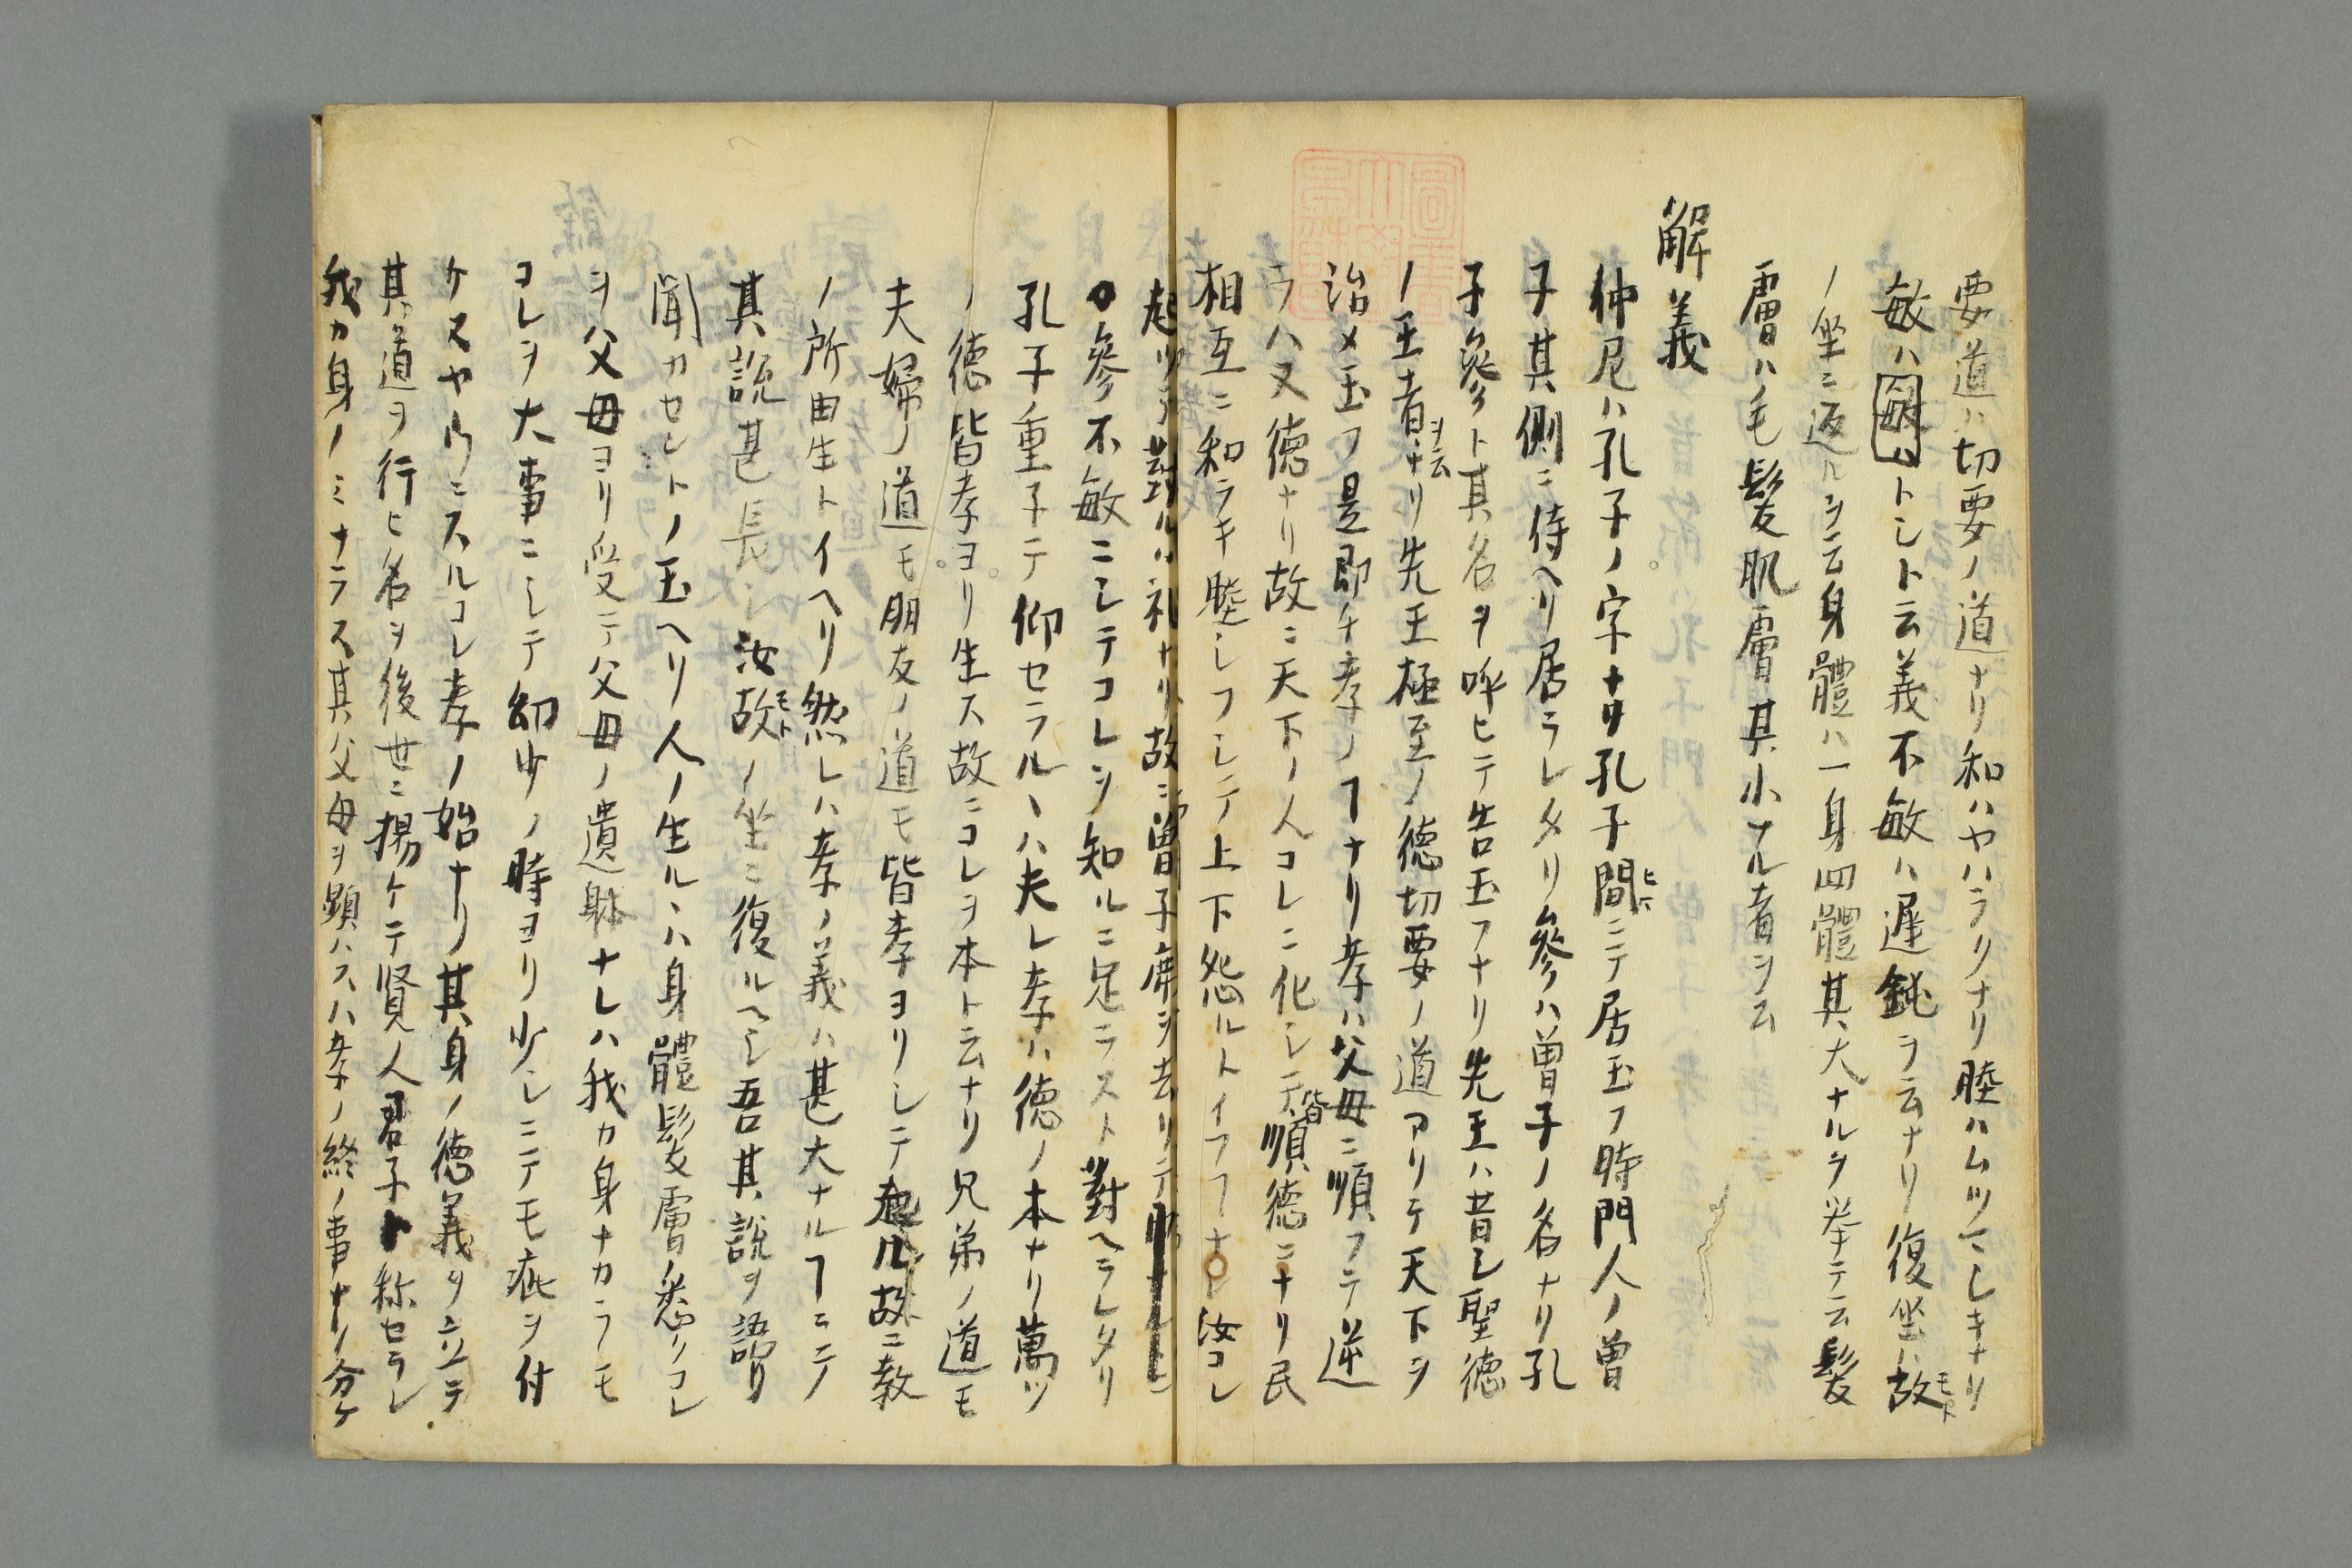 要道ハ切要ノ道ナリ和ハヤハラリナリ睦ハムツマシキナリ
敏ハトシト云義不敏ハ遅鈍ヲ云ナリ復坐ハ故モト
ノ坐ニ返ルヲ云身體ハ一身四體其大ナルヲ挙テ云髪
膚ハノ毛髪肌膚其小ナル者ヲ云
解義
仲尼ハ孔子ノ字ナリ孔子間ヒマニテ居玉フ時門人ノ曽
子其側ニ侍ヘリ居ラレタリ參ハ曽子ノ名ナリ孔
子參ト其名ヲ呼ヒテ告玉フナリ先王ハ昔シ聖徳
ノ王者ヲ云ナリ先王極至ノ徳切要ノ道アリテ天下ヲ
治メ玉フ是即チ孝ノヿナリ孝ハ父母ニ順フテ逆
ラハヌ徳ナリ故ニ天下ノ人コレニ化シテ皆順徳ニナリ民
相互ニ和ラキ睦シフシテ上下怨ルトイフヿナシ汝コレ
起ツテ對ルハ礼ナリ故ニ曽子席ヲ去リテ
參不敏ニシテコレヲ知ルニ足ラスト對ヘラレタリ
孔子重子テ仰セラルヽハ夫レ孝ハ徳ノ本ナリ萬ツ
ノ徳皆孝ヨリ生ス故ニコレヲ本ト云ナリ兄弟ノ道モ
夫婦ノ道モ朋友ノ道モ皆孝ヨリシテ起ル故ニ教
ノ所由生トイヘリ然レハ孝ノ義ハ甚大ナルヿニテ
其説甚長シ汝故モトノ坐ニ復ルヘシ吾其説ヲ語リ
聞カセントノ玉ヘリ人ノ生ルヽハ身體髪膚ノ悉リコレ
ヲ父母ヨリ受テ父母ノ遺躰ナレハ我カ身ナカラモ
コレヲ大事ニシテ幼少ノ時ヨリ少シニテモ疵ヲ付
ケヌヤウニスルコレ孝ノ始ナリ其身ノ徳義ヲ立テ
其道ヲ行ヒ名ヲ後世ニ揚ケテ賢人君子ト称セラレ
我カ身ノミナラス其父母ヲ顕ハスハ孝ノ終ノ事ナリ分ケ